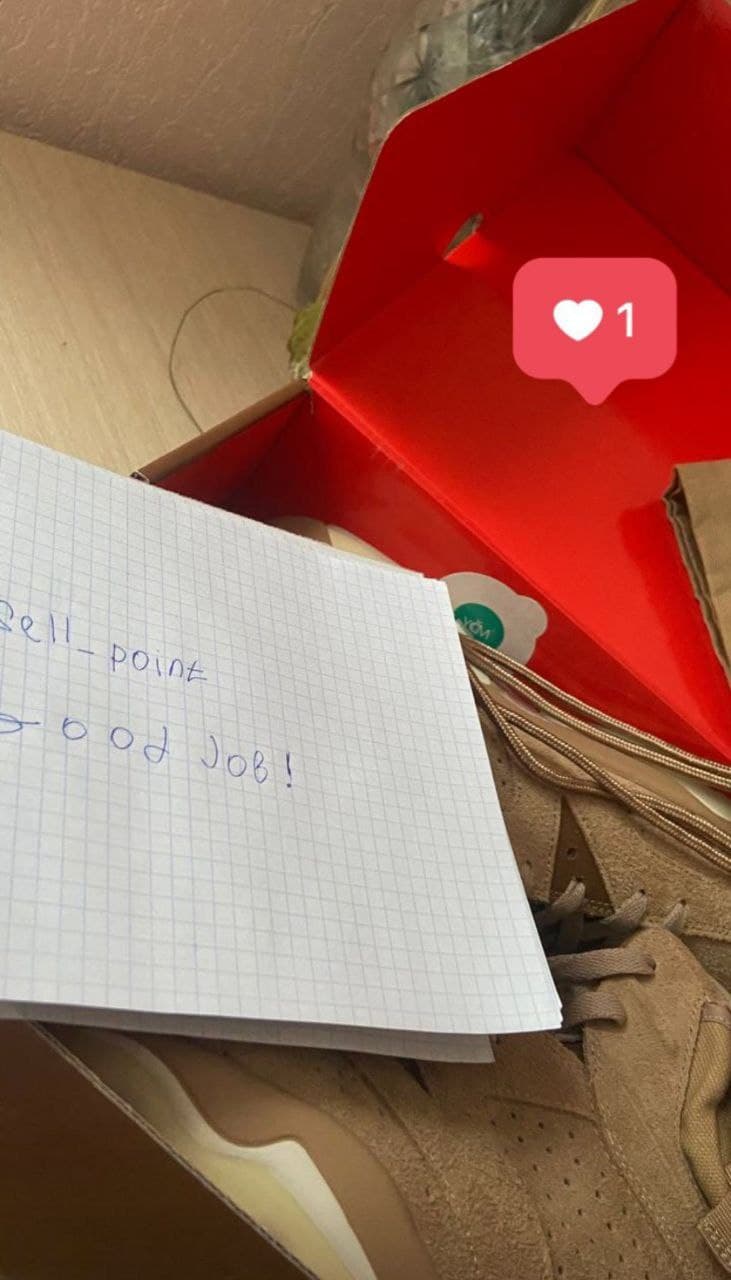 Sell-point
Good Job!
1